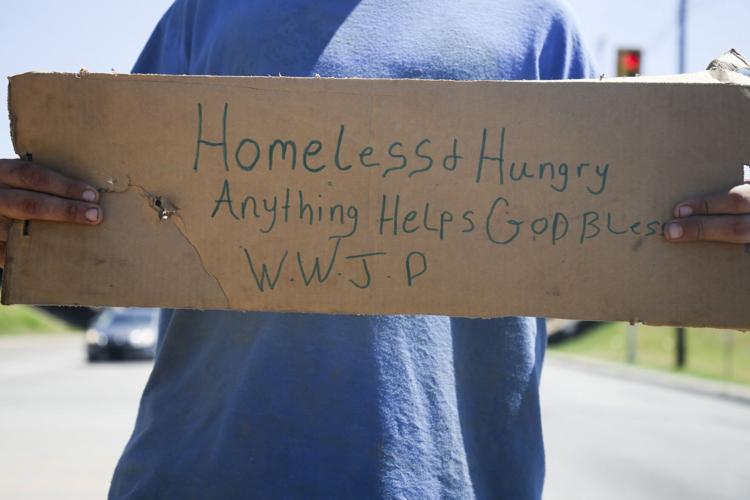 Homeless & Hungry
Anything Helps GOD Bless
W.W.J.D